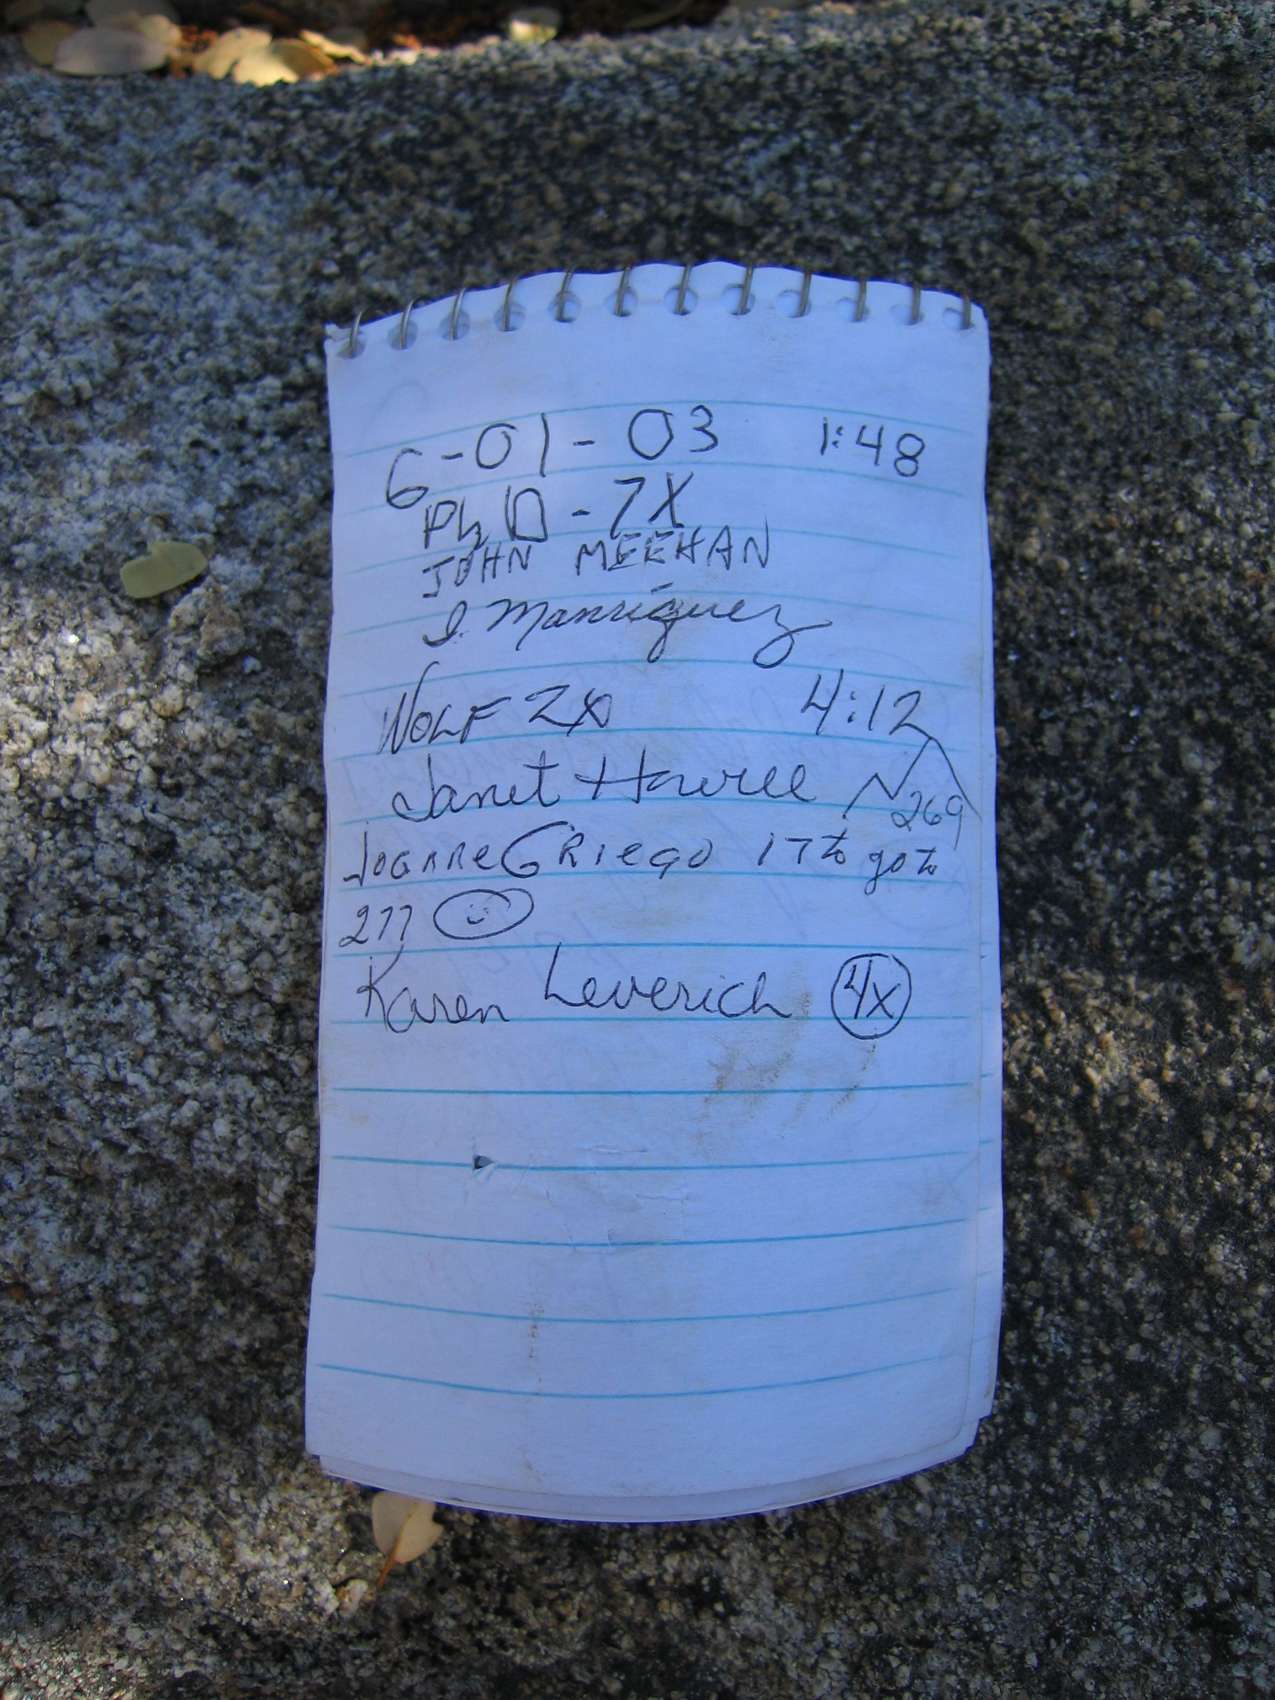 6-01-03 1:48
PhD-7X
JOHN MEEHAN
I. Manriquez
WOLF 2X 4:12
Janet Howell 269
Joanne GRiego 17 to go to
277
Karen Leverich 4x